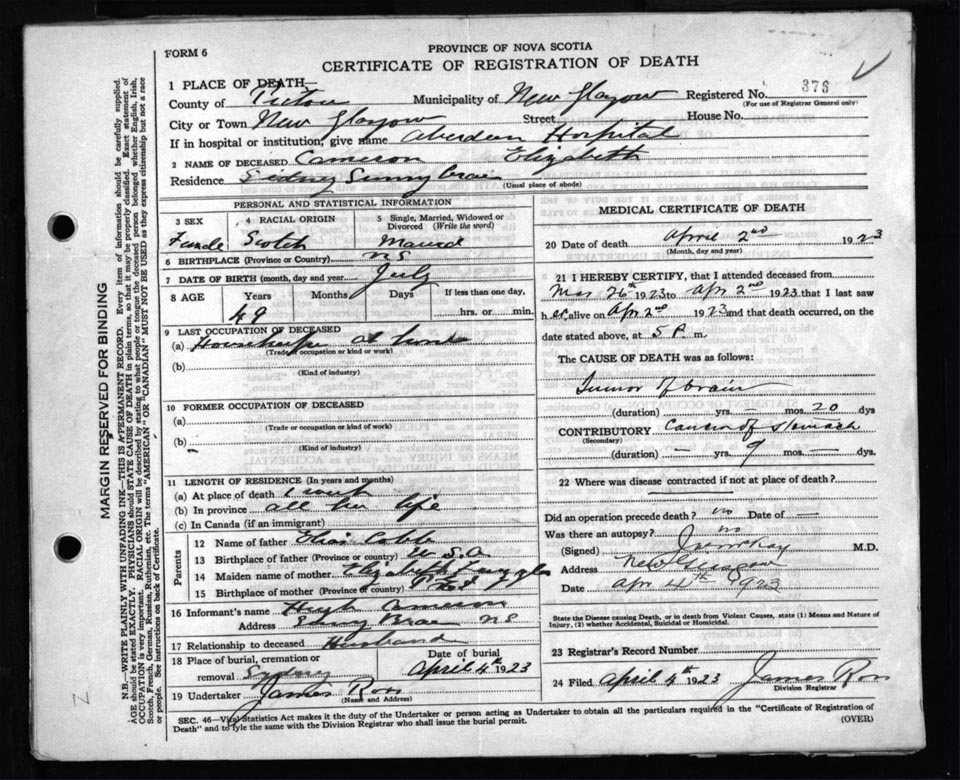 FORM 6
PROVINCE OF NOVA SCOTIA
CERTIFICATE OF REGISTRATION OF DEATH
1 PLACE OF DEATH—
County of Pictou Municipality of New Glasgow Registered No. 376
(For use of Registrar General only)
City or Town New Glasgow Street House No.
If in hospital or institution, give name Aberdeen Hospital
2 NAME OF DECEASED Cameron Elizabeth
Residence Sunny brae
(Usual place of abode)
PERSONAL AND STATISTICAL INFORMATION
3 SEX 4 RACIAL ORIGIN 5 Single, Married, Widowed or Divorced (Write the word)
Female Scotch Married
6 BIRTHPLACE (Province or Country) NS
7 DATE OF BIRTH (month, day and year) July
8 AGE Years Months Days If less than one day,
49 hrs. or min.
9 LAST OCCUPATION OF DECEASED
(a) Housekeeper at home
(Trade or occupation or kind or work)
(b)
(Kind of industry)
10 FORMER OCCUPATION OF DECEASED
(a)
(Trade or occupation or kind of work)
(b)
(Kind of industry)
11 LENGTH OF RESIDENCE (In years and months)
(a) At place of death 1 week
(b) In province all her life
(c) In Canada (if an immigrant)
Parents
12 Name of father
13 Birthplace of father (Province or country) U S A
14 Maiden name of mother Elizabeth
15 Birthplace of mother (Province or country)
16 Informant's name Hugh Cameron
Address Brae NS
17 Relationship to deceased Husband
18 Place of burial, cremation or removal Date of burial
April 4th 1923
19 Undertaker James Ross
(Name and Address)
MEDICAL CERTIFICATE OF DEATH
20 Date of death April 2nd 1923
(Month, day and year)
21 I HEREBY CERTIFY, that I attended deceased from
Mar 26th 1923 to Apr 2nd 1923 that I last saw
her alive on Apr 2nd 1923 and that death occurred, on
date stated above, at 5 P. m.
The CAUSE OF DEATH was as follows:
Tumor of brain
(duration) — yrs. — mos. 20 dys
CONTRIBUTORY Cancer of stomach
(Secondary)
(duration) — yrs. 9 mos. — dys.
22 Where was disease contracted if not at place of death?
Did an operation precede death? no Date of —
Was there an autopsy? no
(Signed) M.D.
Address New Glasgow
Date Apr 4th 1923
State the Disease causing Death, or in death from Violent Causes, state (1) Means and Nature of Injury, (2) whether Accidental, Suicidal or Homicidal.
23 Registrar's Record Number
24 Filed April 4th 1923 James Ross
Division Registrar
SEC. 46—Vital Statistics Act makes it the duty of the Undertaker or person acting as Undertaker to obtain all the particulars required in the "Certificate of Registration of
Death" and to fyle the same with the Division Registrar who shall issue the burial permit. (OVER)
MARGIN RESERVED FOR BINDING
N.B.—WRITE PLAINLY WITH UNFADING INK—THIS IS A PERMANENT RECORD. Every item of information should be carefully supplied.
AGE should be stated EXACTLY. PHYSICIANS should STATE CAUSE OF DEATH in plain terms, so that it may be properly classified. Exact statement of
OCCUPATION is very important. RACIAL ORIGIN will be described by stating to what people or tongue the deceased person belonged whether English, Irish,
Scotch, French, German, Russian, Ruthenian, etc. The terms "AMERICAN" OR "CANADIAN" MUST NOT BE USED as they express citizenship but not a race
or people. See instructions on back of Certificate.